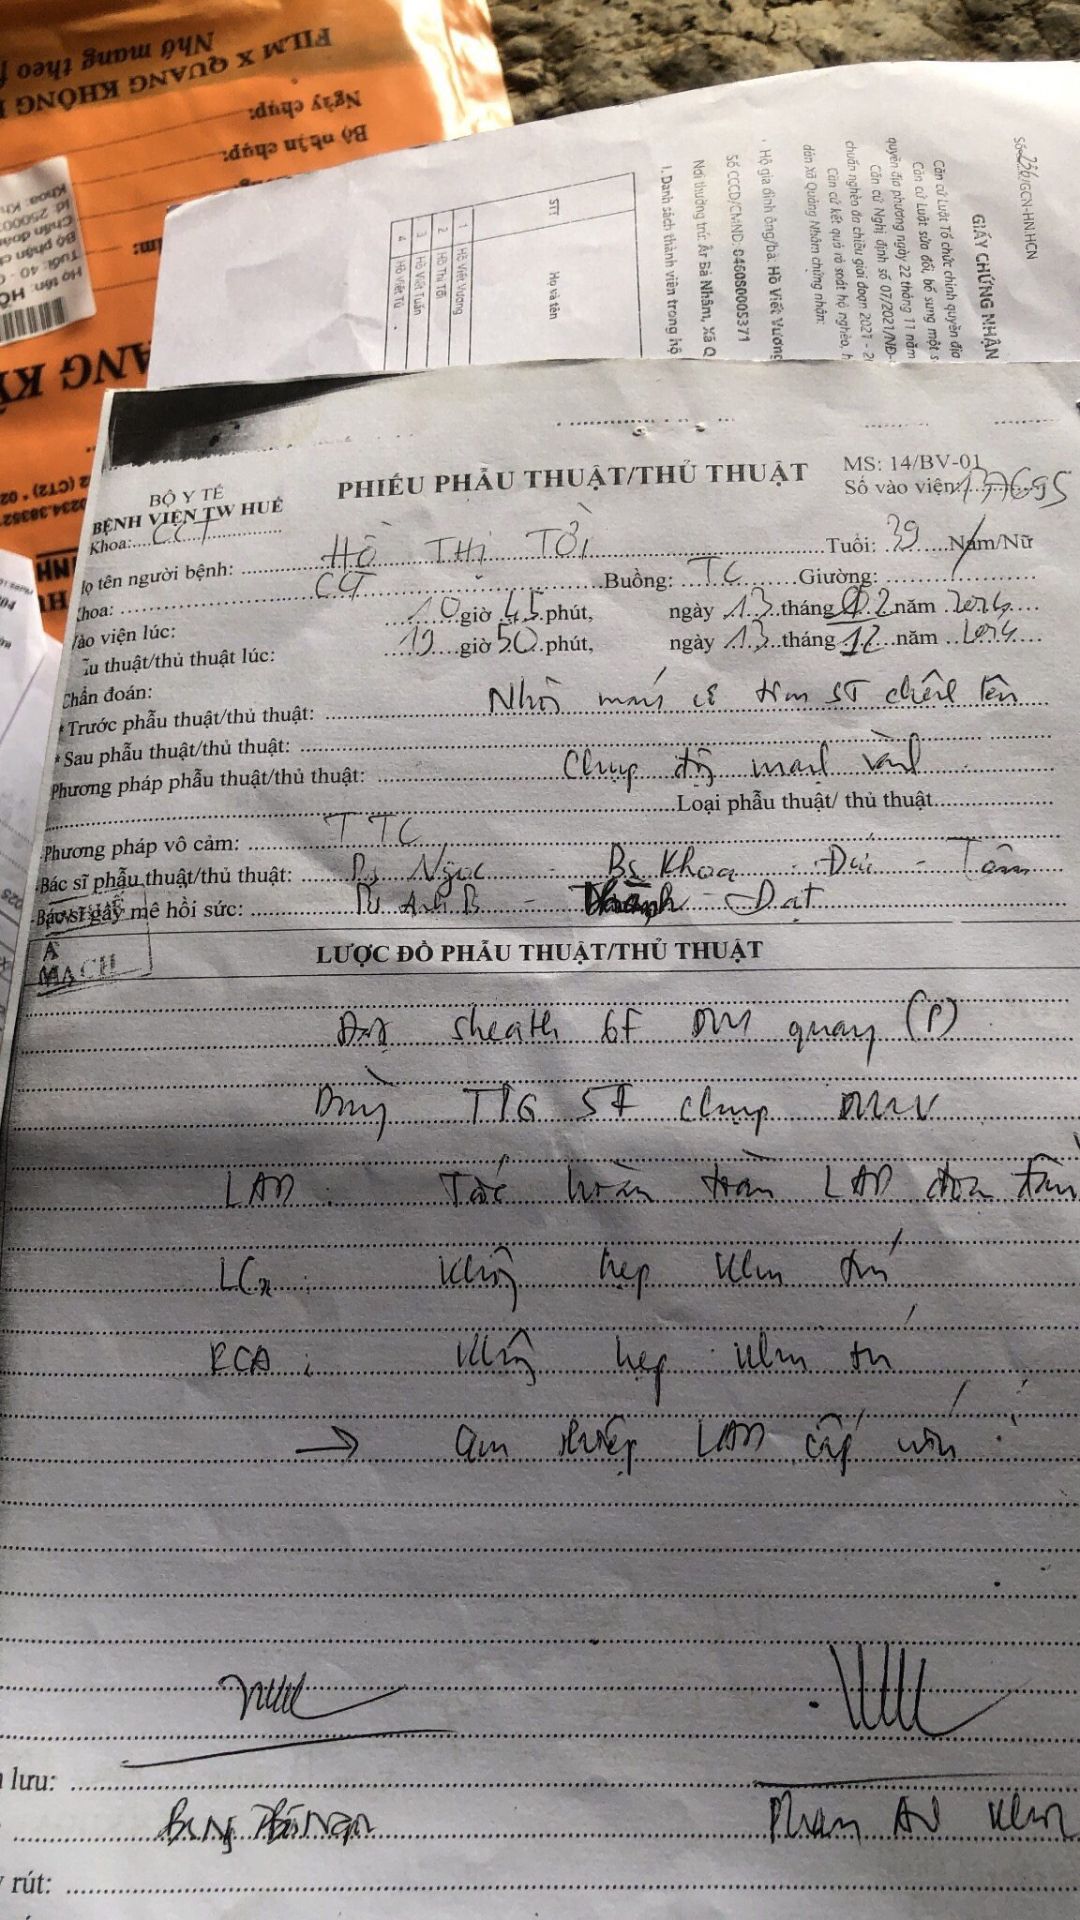 FILM X QUANG KHÔNG
Nhớ mang theo
Ngày chụp:
Bộ phận chụp:
Số 236/GCN-HN.HCN
GIẤY CHỨNG NHẬN
Căn cứ Luật Tổ chức chính quyền địa
Căn cứ Luật sửa đổi, bổ sung một s
quyền địa phương ngày 22 tháng 11 năm
Căn cứ Nghị định số 07/2021/NĐ-
chuẩn nghèo đa chiều giai đoạn 2021 - 2
Căn cứ kết quả rà soát hộ nghèo, h
dân xã Quảng Nhâm chứng nhận:
Hộ gia đình ông/bà: Hồ Viết Vương
Số CCCD/CMND: 046080005371
Nơi thường trú: Âr Bả Nhâm, Xã Q
1. Danh sách thành viên trong hộ
STT Họ và tên
1 Hồ Viết Vương
2 Hồ Thị Tới
3 Hồ Viết Tuấn
4 Hồ Viết Tú
BỘ Y TẾ
BỆNH VIỆN TW HUẾ
Khoa: CCT
PHIẾU PHẪU THUẬT/THỦ THUẬT
MS: 14/BV-01
Số vào viện: 137695
ọ tên người bệnh: HỒ THỊ TỚI Tuổi: 39 Nam/Nữ
Khoa: CCT Buồng: TC Giường:
Vào viện lúc: 10 giờ 45 phút, ngày 13 tháng 12 năm 2024
ẫu thuật/thủ thuật lúc: giờ 50 phút, ngày 13 tháng 12 năm 2024
Chẩn đoán:
*Trước phẫu thuật/thủ thuật: Nhồi máu cơ tim ST chênh lên
*Sau phẫu thuật/thủ thuật:
Phương pháp phẫu thuật/thủ thuật: Chụp động mạch vành
Loại phẫu thuật/ thủ thuật
-Phương pháp vô cảm: TTC
-Bác sĩ phẫu thuật/thủ thuật: Bs Ngọc - Bs Khoa - Đức - Tâm
-Bác sĩ gây mê hồi sức: Bs Anh B - Thành - Đạt
MẠCH
LƯỢC ĐỒ PHẪU THUẬT/THỦ THUẬT
Đặt sheath 6F ĐM quay (P)
Dùng TIG 5F chụp ĐMV
LAD: Tắc hoàn toàn LAD đoạn
LCx: Không hẹp khu trú
RCA: Không hẹp khu trú
→ Can thiệp LAD cấp cứu
lưu:
Phan
rút: